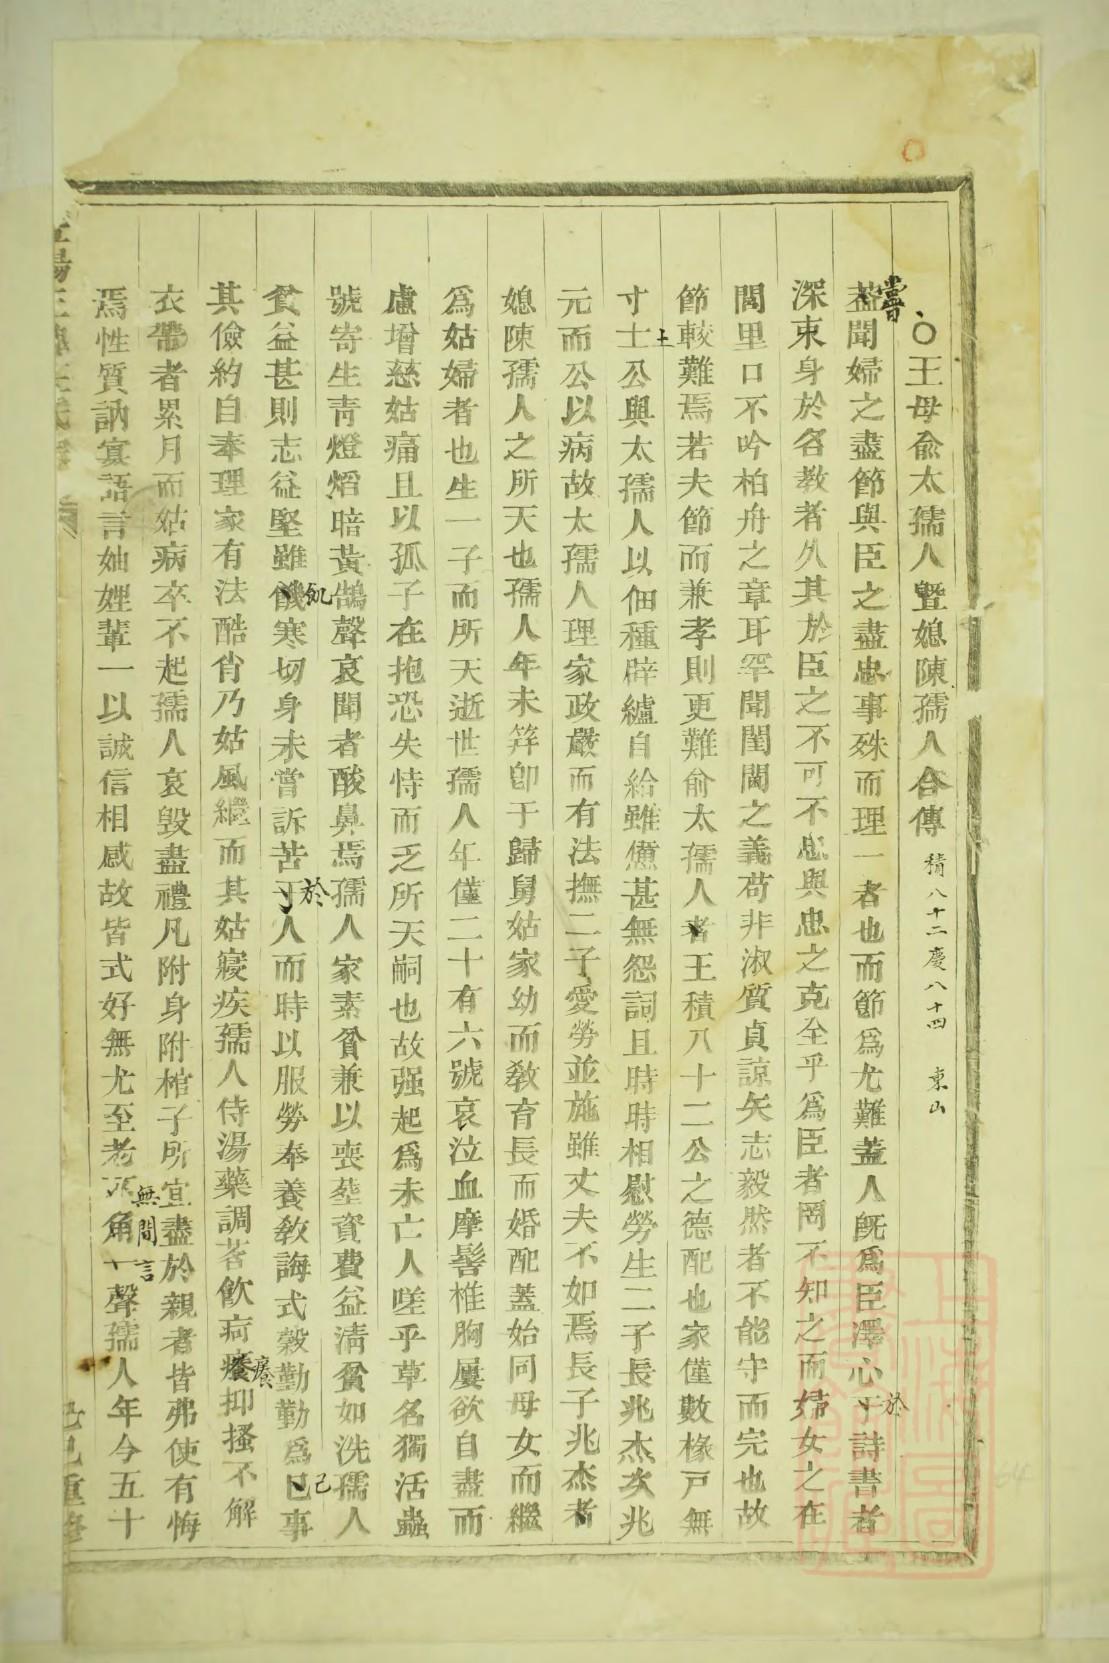 ○王母俞太孺人暨媳陳孺人合傳 積八十二慶八十四 東山
嘗
蓋聞婦之盡節與臣之盡忠事殊而理一者也而節爲尤難蓋人旣爲臣澤心于詩書者
於
深束身於名教者久其於臣之不可不忠與忠之克至乎爲臣者罔不知之而婦女之在
閭里口不吟柏舟之章耳罕聞閨閫之義苟非淑質貞諒矢志毅然者不能守而完也故
節較難焉若夫節而兼孝則更難俞太孺人者王積八十二公之德配也家僅數椽戸無
寸士公與太孺人以佃種辟纑自給雖憊甚無怨詞且時時相慰勞生二子長兆杰次兆
土
元而公以病故太孺人理家政嚴而有法撫二子愛勞並施雖丈夫不如焉長子兆杰者
媳陳孺人之所天也孺人年未笄卽于歸舅姑家幼而敎育長而婚配蓋始同母女而繼
爲姑婦者也生一子而所天逝世孺人年僅二十有六號哀泣血摩髻椎胸屢欲自盡而
慮增慈姑痛且以孤子在抱恐失恃而乏所天嗣也故强起爲未亡人嗟乎草名獨活蟲
號寄生靑燈熖暗黃鵠聲哀聞者酸鼻焉孺人家素貧兼以喪塟資費益淸貧如洗孺人
貧益甚則志益堅雖饑寒切身未嘗訴苦于人而時以服勞奉養敎誨式穀勤勤爲巳事
飢 於 己
其儉約自奉理家有法酷肖乃姑風繼而其姑寢疾孺人侍湯藥調茗飲疴癢抑搔不解
癢
衣帶者累月而姑病卒不起孺人哀毀盡禮凡附身附棺子所宜盡於親者皆弗使有悔
焉性質訥寡語言妯娌輩一以誠信相感故皆式好無尤至老 角 聲孺人年今五十
無間言
己巳重修